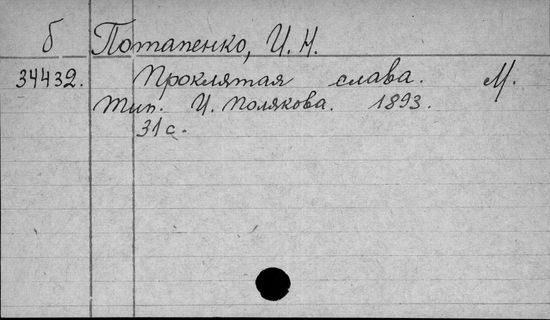 б Потапенко, И. Н.
34432. Проклятая слава. М.
Тип. И. Полякова. 1893.
31 с.